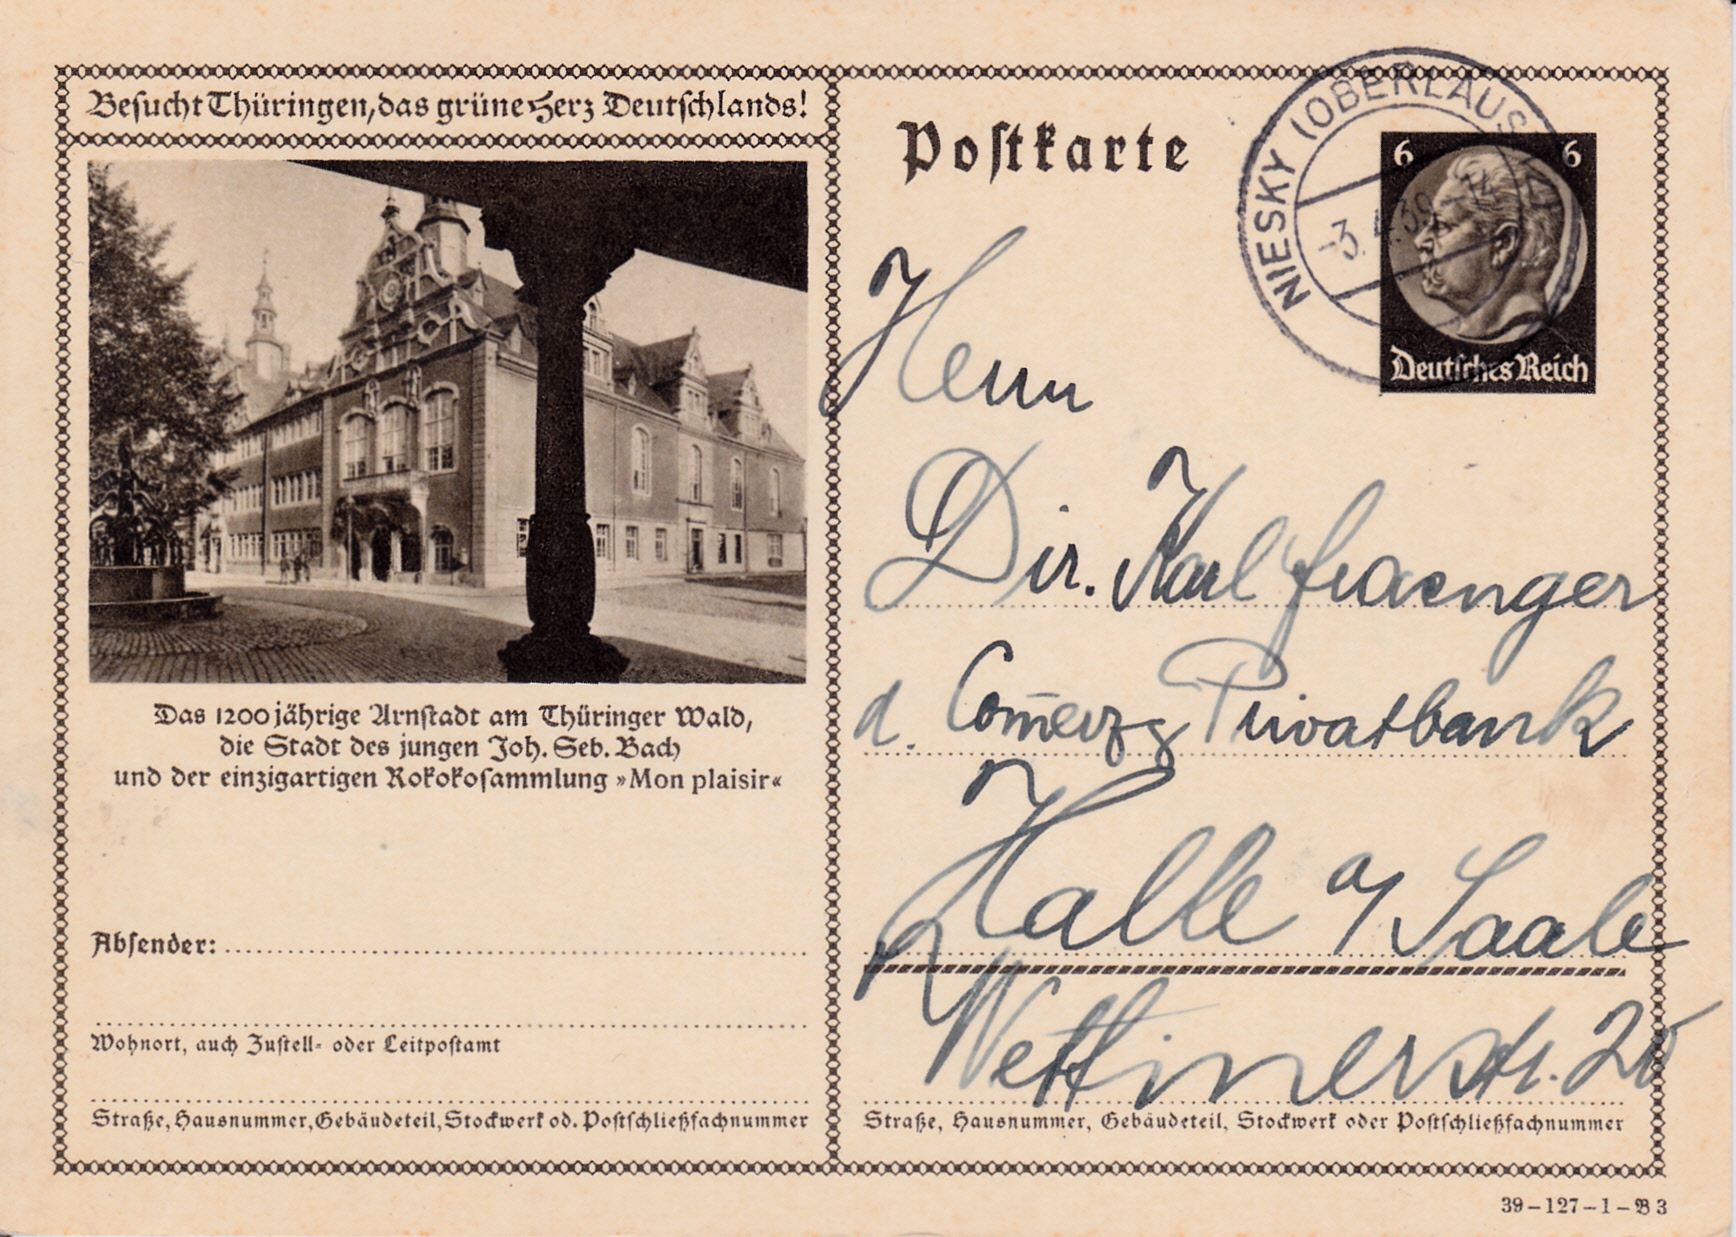 Besucht Thüringen, das grüne Herz Deutschlands!
Das 1200jährige Arnstadt am Thüringer Wald,
die Stadt des jungen Joh. Seb. Bach
und der einzigartigen Rokokosammlung »Mon plaisir«
Absender:
Wohnort, auch Zustell- oder Leitpostamt
Straße, Hausnummer, Gebäudeteil, Stockwerk od. Postschließfachnummer
Postkarte
NIESKY (OBERLAUSITZ)
-3.4.39.-14
6 6
Deutsches Reich
Herrn
Dir. Karl Fraenger
d. Com̅erz Privatbank
Halle a/Saale
Wettinerstr.
Straße, Hausnummer, Gebäudeteil, Stockwerk oder Postschließfachnummer
39-127-1-B3